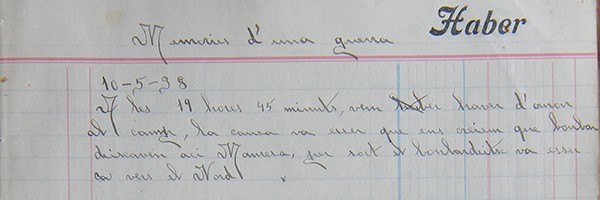 Haber
Memories d'una guerra
10-5-38
A les 19 hores 45 minuts, vem haver d'anar
al camp, la causa va esser que ens creiem que bonbar
deixaven aci Manresa, per sort el bonbardeitx va esser
va vers el Nord